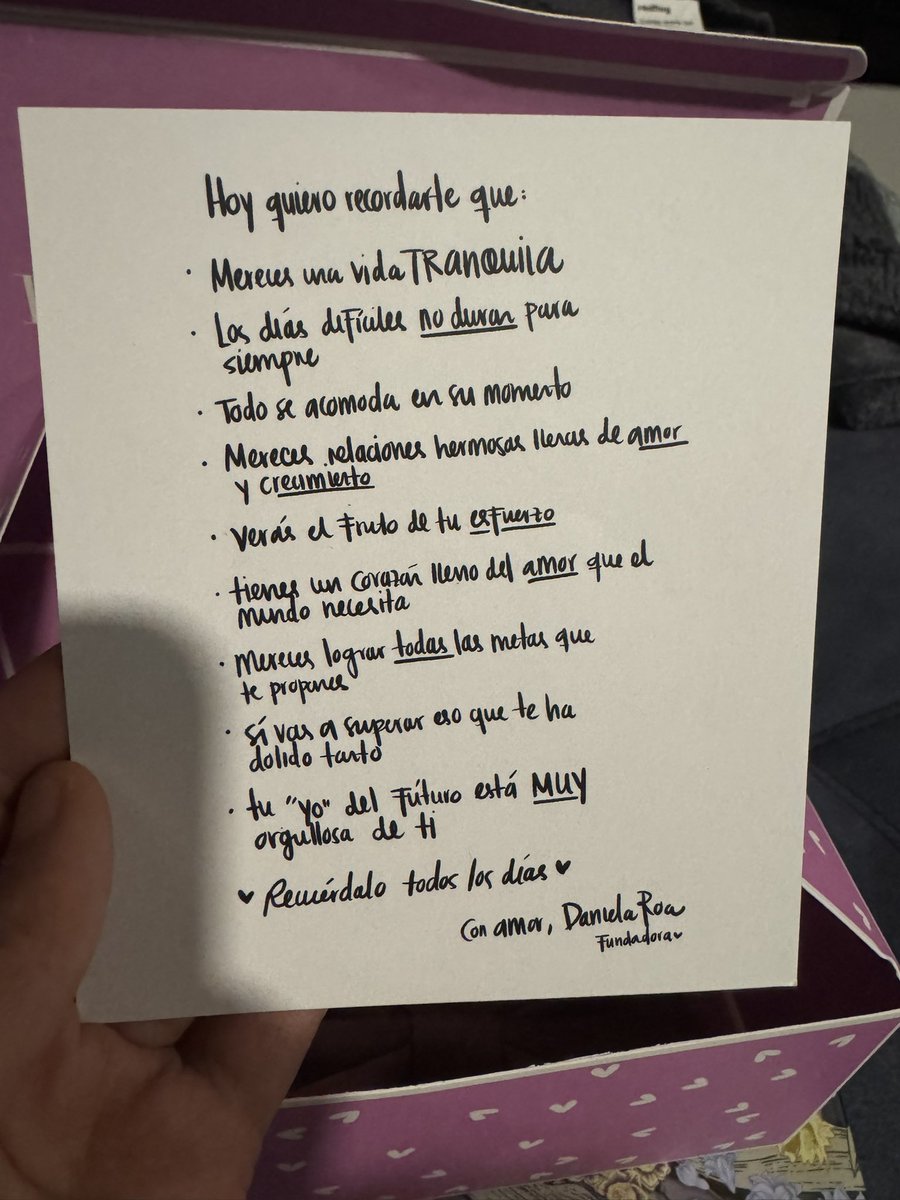 Hoy quiero recordarte que:
· Mereces una vida TRANQUILA
· Los días difíciles no duran para
siempre
· Todo se acomoda en su momento
· Mereces relaciones hermosas llenas de amor
y crecimiento
· Verás el fruto de tu esfuerzo
· tienes un corazón lleno del amor que el
mundo necesita
· Mereces lograr todas las metas que
te propones
· Sí vas a superar eso que te ha
dolido tanto
· tu "yo" del fúturo está MUY
orgullosa de ti
♥ Recuérdalo todos los días ♥
Con amor, Daniela Roa
Fundadora ♥